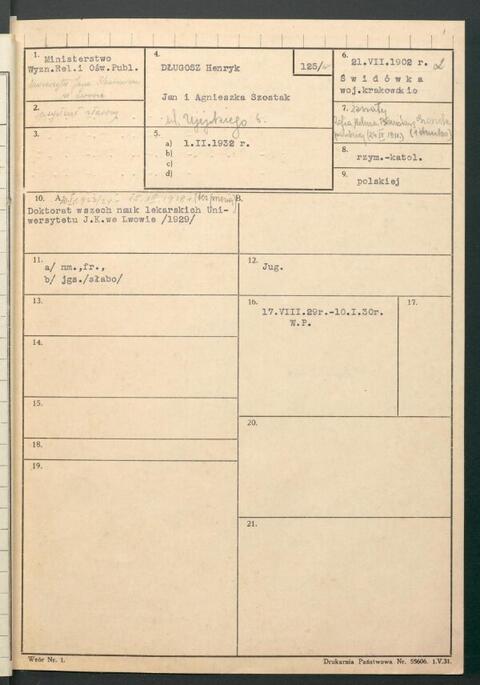 1. Ministerstwo
Wyzn.Rel.i Ośw.Publ.
Uniwersytet Jana Kazimierza
w Lwowie
2.
asystent starszy
3.
4.
DŁUGOSZ Henryk
125/
Jan i Agnieszka Szostak
ul.
5.
a) 1.II.1932 r.
b)
c)
d)
6.
21.VII.1902 r.
Świdówka
woj.krakowskie
7. żonaty
Zofia, Helena
polskiej
8.
rzym.-katol.
9.
polskiej
10. A.
B.
Doktorat wszech nauk lekarskich Uni-
wersytetu J.K.we Lwowie /1929/
11.
a/ nm.,fr.,
b/ jgs./słabo/
12.
Jug.
13.
14.
15.
16.
17.VIII.29r.-10.I.30r.
W.P.
17.
18.
19.
20.
21.
Wzór Nr. 1.
Drukarnia Państwowa Nr. 55606. 1.V.31.